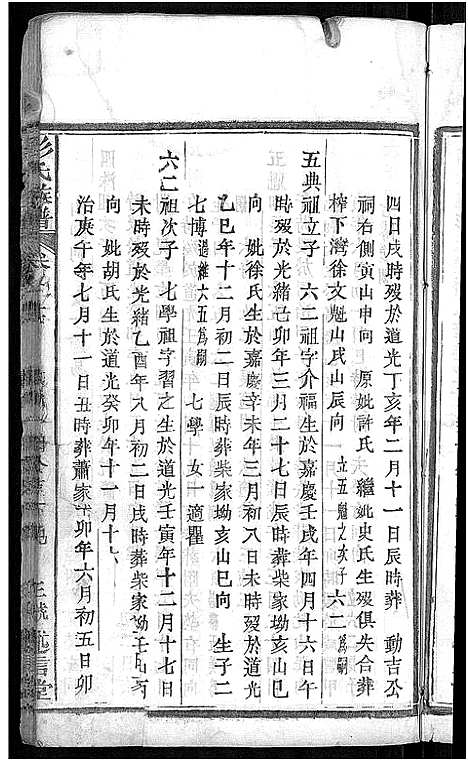 四日戌時歿於道光丁亥年二月十一日辰時葬 動吉公
祠右側寅山申向 原妣許氏 繼妣史氏生歿俱失合葬
榨下灣徐文魁山戌山辰向 立五魁之次子六二為嗣
五典祖立子 六二祖字介福生於嘉慶壬戌年四月十六日午
時歿於光緒己卯年三月二十七日辰時葬柴家坳亥山巳
向 妣徐氏生於嘉慶辛未年三月初八日未時歿於道光
乙巳年十二月初二日辰時葬柴家坳亥山巳向 生子二
七博過繼六五為嗣 七學 女一適瞿
六二祖次子 七學祖字習之生於道光壬寅年十二月十七日
未時歿於光緒乙酉年八月初二日戌時葬柴家坳壬山丙
向 妣胡氏生於道光癸卯年十一月十
治庚午年七月十一日丑時葬蕭家 卯年六月初五日卯
彭氏族譜 卷之
信堂